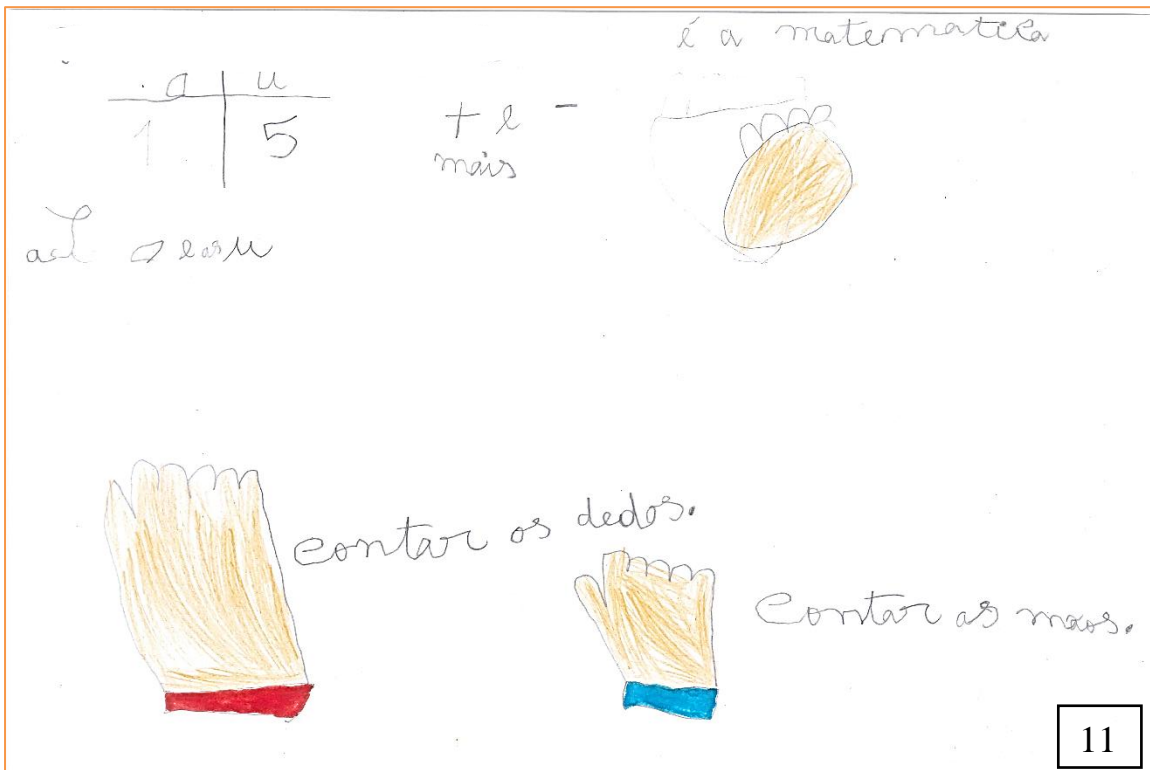 é a matematica
d u
1 5
+ e -
mais
contar os dedos.
Contar as mãos.
11